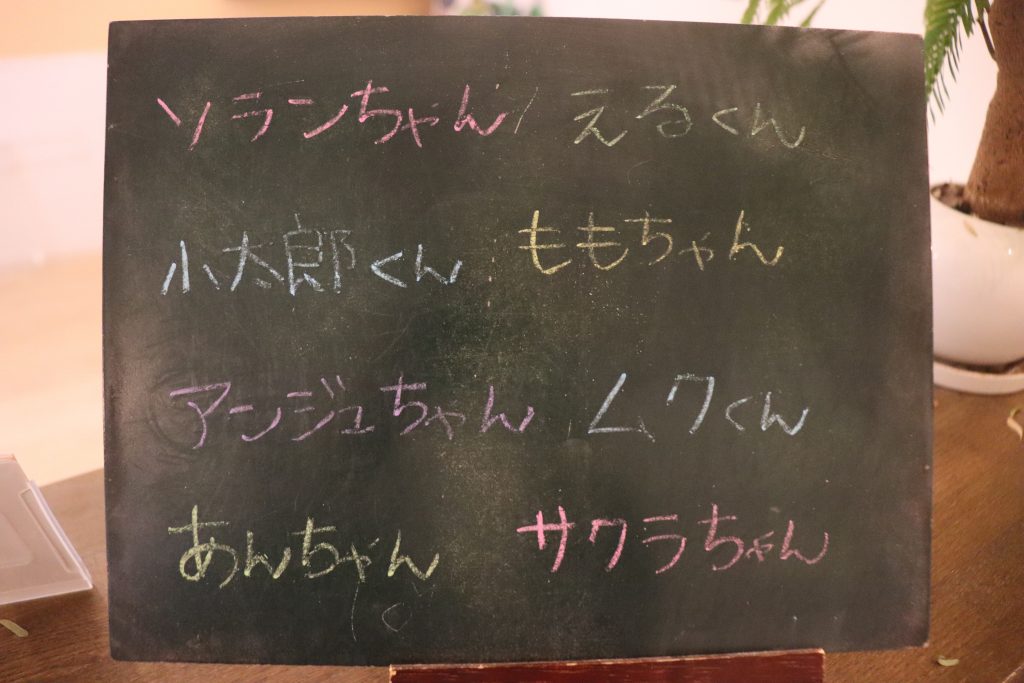 ソランちゃん えるくん
小太郎くん ももちゃん
アンジュちゃん ムクくん
あんちゃん サクラちゃん